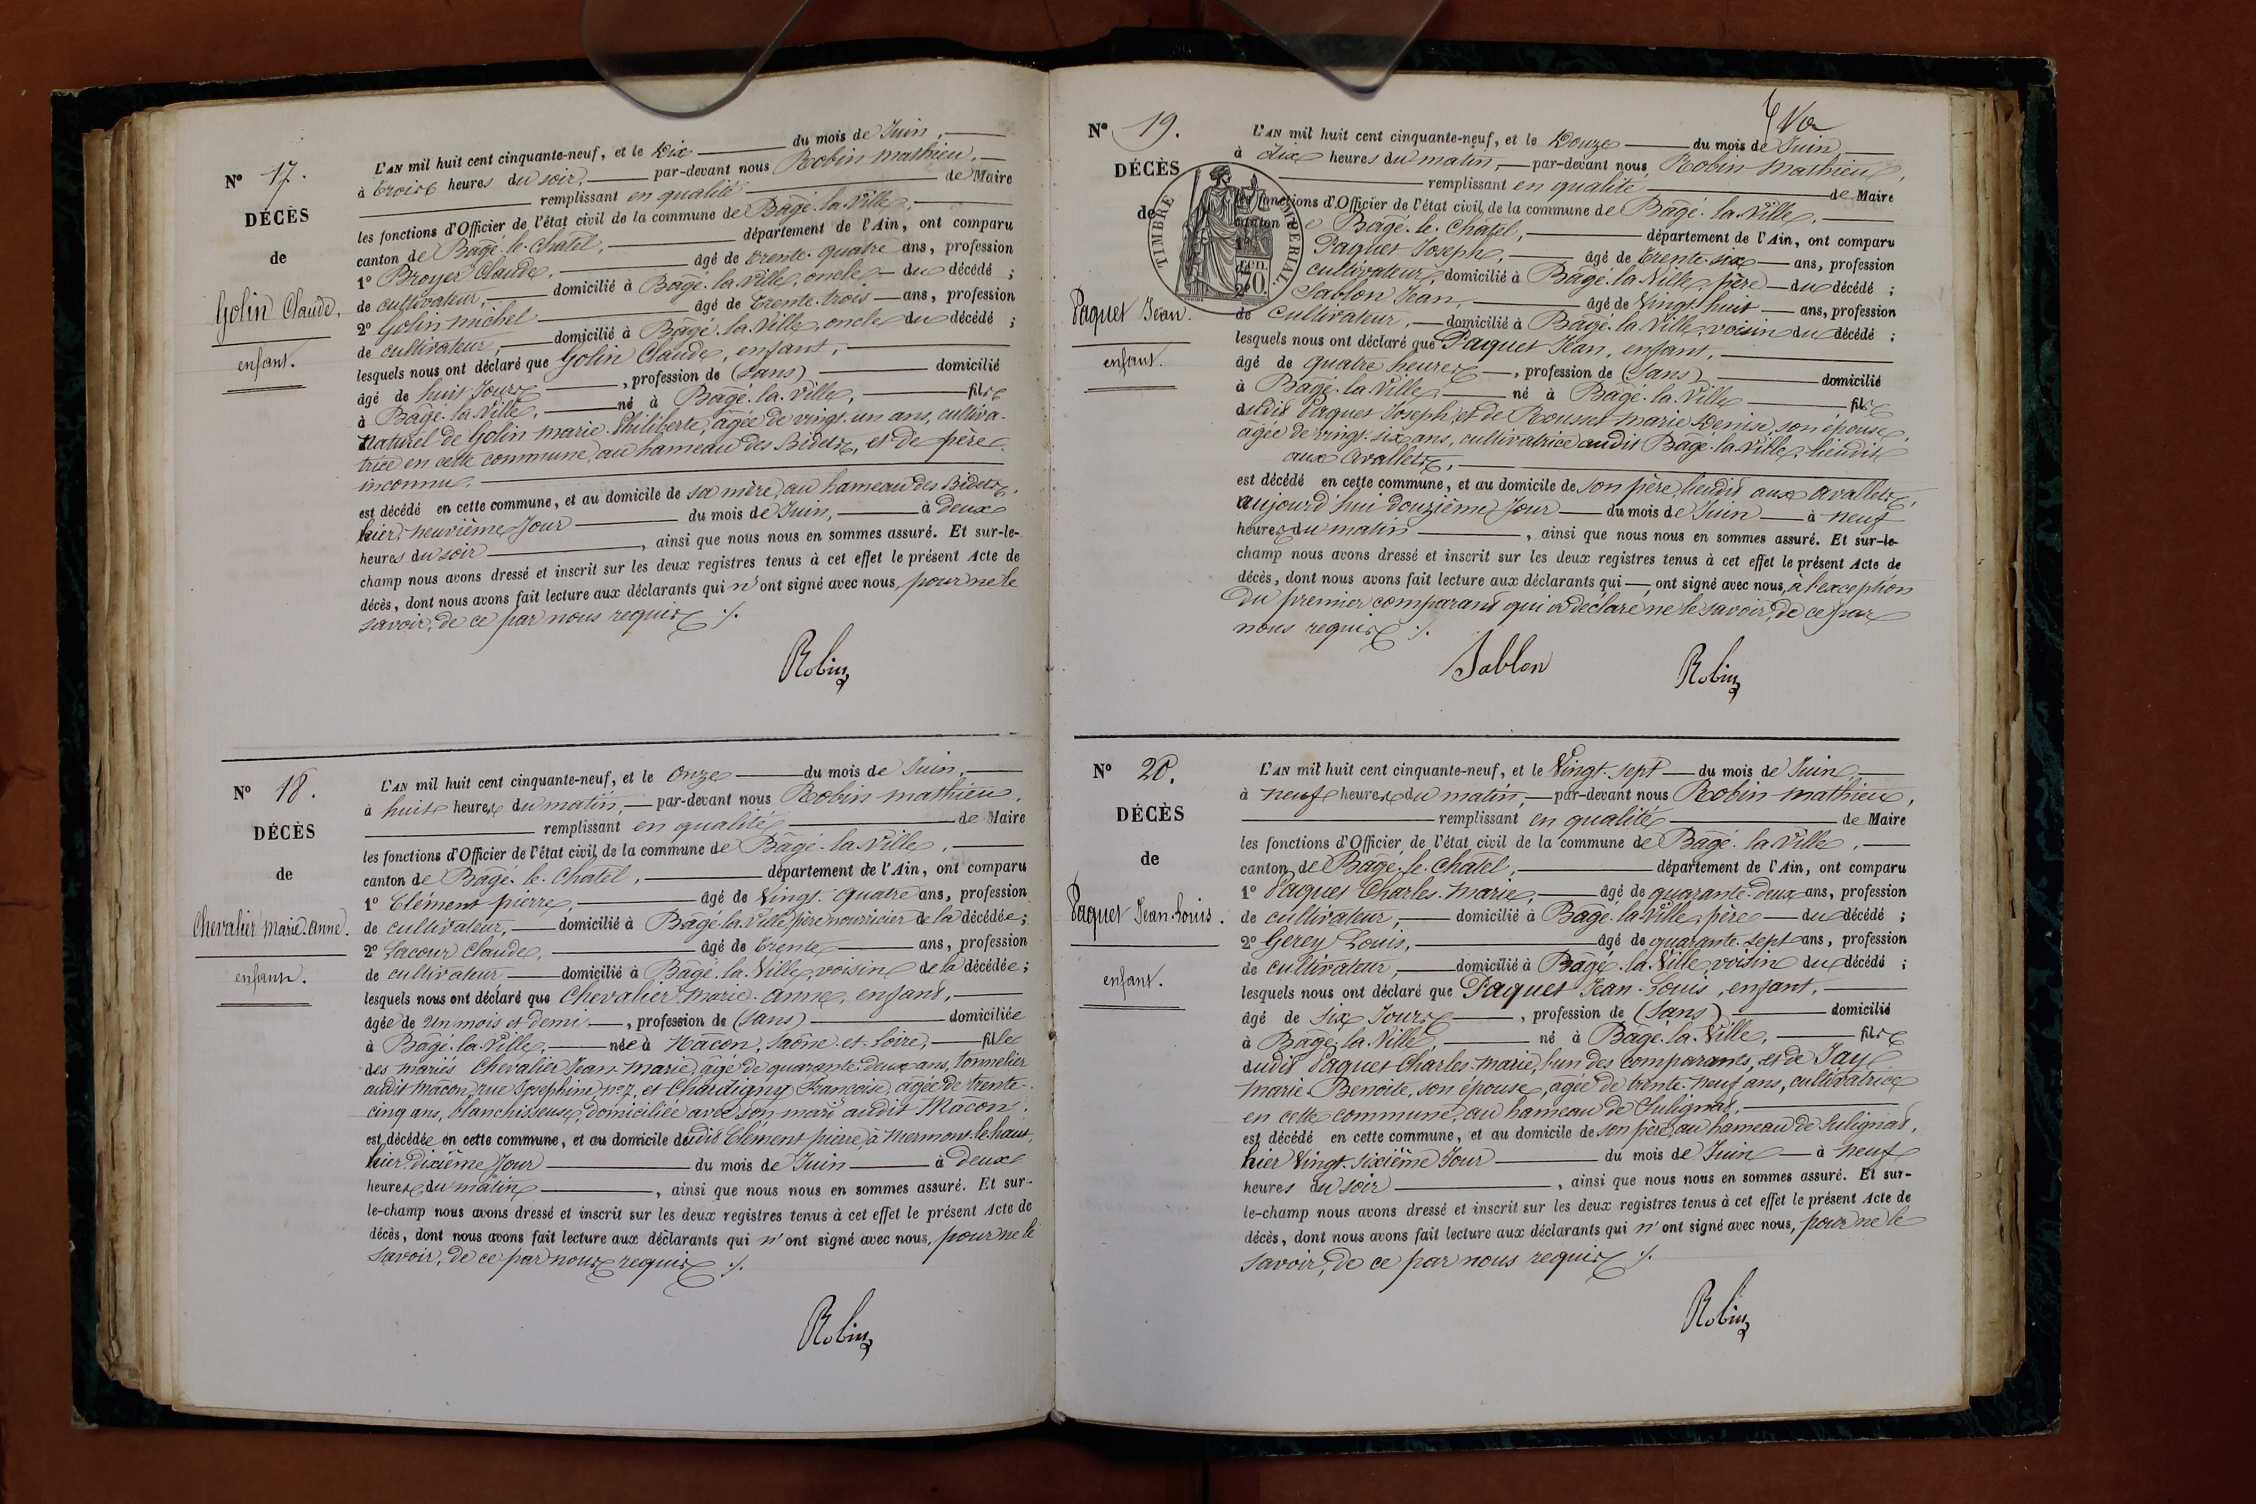 N° 17.
DÉCÈS
de
Golin Claude,
enfant.
L'AN mil huit cent cinquante-neuf, et le Dix du mois de Juin,
à trois heures du soir, par-devant nous Robin Mathieu,
remplissant en qualité de Maire
les fonctions d'Officier de l'état civil de la commune de Bâgé-la-Ville,
canton de Bâgé-le-Châtel, département de l'Ain, ont comparu
1° Broyer Claude, âgé de trente-quatre ans, profession
de cultivateur, domicilié à Bâgé-la-Ville, oncle du décédé ;
2° Golin Michel âgé de trente-trois ans, profession
de cultivateur, domicilié à Bâgé-la-Ville, oncle du décédé ;
lesquels nous ont déclaré que Golin Claude, enfant,
âgé de huit Jours, profession de (Sans) domicilié
à Bâgé-la-Ville, né à Bâgé-la-Ville, fils
naturel de Golin Marie-Philiberte, âgée de vingt-un ans, cultiva-
trice en cette commune, au hameau des Bidets, et de père
inconnu.
est décédé en cette commune, et au domicile de sa mère, au hameau des Bidets,
hier, neuvième Jour du mois de Juin, à deux
heures du soir, ainsi que nous nous en sommes assuré. Et sur-le-
champ nous avons dressé et inscrit sur les deux registres tenus à cet effet le présent Acte de
décès, dont nous avons fait lecture aux déclarants qui n'ont signé avec nous, pour ne le
savoir, de ce par nous requis ./.
Robin
N° 18.
DÉCÈS
de
Chevalier Marie-Anne.
enfant.
L'AN mil huit cent cinquante-neuf, et le Onze du mois de Juin,
à huit heures du matin, par-devant nous Robin Mathieu,
remplissant en qualité de Maire
les fonctions d'Officier de l'état civil de la commune de Bâgé-la-Ville,
canton de Bâgé-le-Châtel, département de l'Ain, ont comparu
1° Clément pierre, âgé de Vingt-quatre ans, profession
de cultivateur, domicilié à Bâgé-la-Ville, père nourricier de la décédée ;
2° Lacour Claude, âgé de trente ans, profession
de cultivateur domicilié à Bâgé-la-Ville, voisin de la décédée ;
lesquels nous ont déclaré que Chevalier Marie-Anne, enfant,
âgée de Un mois et demi, profession de (Sans) domiciliée
à Bâgé-la-Ville, née à Mâcon, Saône-et-Loire, fille
des mariés Chevalier Jean-Marie, âgé de quarante-deux ans, tonnelier
audit Mâcon, rue Joséphine, n° 7, et Chardigny Françoise, âgée de trente-
cinq ans, blanchisseuse, domiciliée avec son mari audit Mâcon.
est décédée en cette commune, et au domicile dudit Clément pierre, à Mermont-le-haut,
hier dixième Jour du mois de Juin à deux
heures du matin, ainsi que nous nous en sommes assuré. Et sur-
le-champ nous avons dressé et inscrit sur les deux registres tenus à cet effet le présent Acte de
décès, dont nous avons fait lecture aux déclarants qui n'ont signé avec nous, pour ne le
savoir, de ce par nous requis ./.
Robin
N° 19.
DÉCÈS
de
TIMBRE IMPÉRIAL
Paquet Jean.
enfant.
L'AN mil huit cent cinquante-neuf, et le Douze du mois de Juin
à dix heures du matin, par-devant nous Robin Mathieu,
remplissant en qualité de Maire
les fonctions d'Officier de l'état civil de la commune de Bâgé-la-Ville,
canton de Bâgé-le-Châtel, département de l'Ain, ont comparu
1° Paquet Joseph, âgé de trente-six ans, profession
cultivateur, domicilié à Bâgé-la-Ville, père du décédé ;
2° Sablon Jean, âgé de Vingt-huit ans, profession
de cultivateur, domicilié à Bâgé-la-Ville, voisin du décédé ;
lesquels nous ont déclaré que Paquet Jean, enfant,
âgé de quatre heures, profession de (Sans) domicilié
à Bâgé-la-Ville, né à Bâgé-la-Ville fils
dudit Paquet Joseph, et de Rousset Marie Denise, son épouse,
âgée de vingt-six ans, cultivatrice audit Bâgé-la-Ville, lieudit
aux Avallets,
est décédé en cette commune, et au domicile de son père, lieudit aux Avallets,
aujourd'hui douzième Jour du mois de Juin à neuf
heures du matin, ainsi que nous nous en sommes assuré. Et sur-le-
champ nous avons dressé et inscrit sur les deux registres tenus à cet effet le présent Acte de
décès, dont nous avons fait lecture aux déclarants qui ont signé avec nous, à l'exception
du premier comparant qui a déclaré ne le savoir, de ce par
nous requis ./.
Sablon Robin
N° 20.
DÉCÈS
de
Paquet Jean-Louis.
enfant.
L'AN mil huit cent cinquante-neuf, et le Vingt-sept du mois de Juin,
à neuf heures du matin, par-devant nous Robin Mathieu,
remplissant en qualité de Maire
les fonctions d'Officier de l'état civil de la commune de Bâgé-la-Ville,
canton de Bâgé-le-Châtel, département de l'Ain, ont comparu
1° Paquet Charles-Marie, âgé de quarante-deux ans, profession
de cultivateur, domicilié à Bâgé-la-Ville, père du décédé ;
2° Gerey Louis, âgé de quarante-sept ans, profession
de cultivateur, domicilié à Bâgé-la-Ville, voisin du décédé ;
lesquels nous ont déclaré que Paquet Jean-Louis, enfant,
âgé de six Jours, profession de (Sans) domicilié
à Bâgé-la-Ville, né à Bâgé-la-Ville, fils
dudit Paquet Charles-Marie, l'un des comparants, et de Jay
Marie-Benoite, son épouse, âgée de trente-neuf ans, cultivatrice
en cette commune, au hameau de Sulignat,
est décédé en cette commune, et au domicile de son père, au hameau de Sulignat,
hier Vingt-sixième Jour du mois de Juin à neuf
heures du soir, ainsi que nous nous en sommes assuré. Et sur-
le-champ nous avons dressé et inscrit sur les deux registres tenus à cet effet le présent Acte de
décès, dont nous avons fait lecture aux déclarants qui n'ont signé avec nous, pour ne le
savoir, de ce par nous requis ./.
Robin